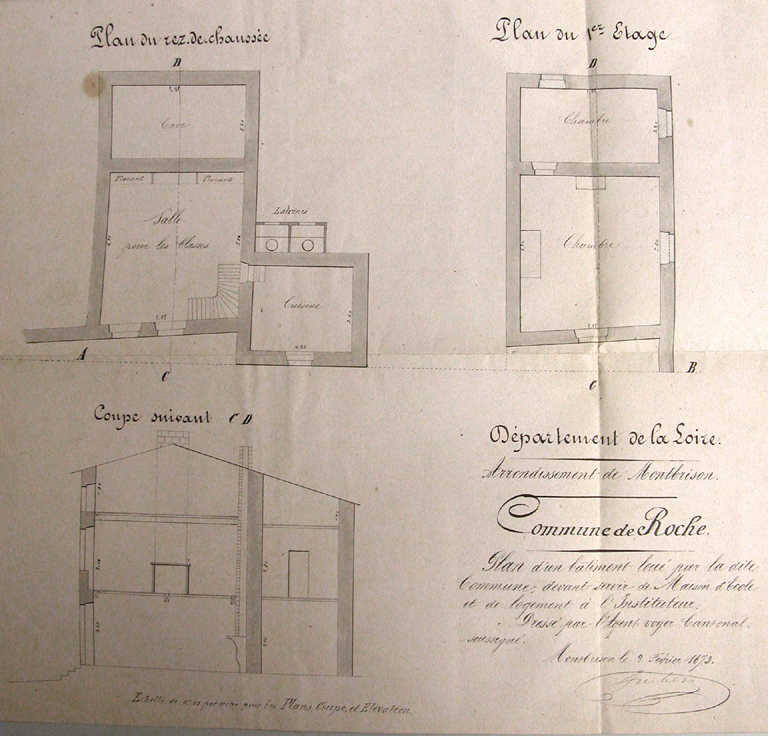 Plan du rez.de.chaussée
Plan du 1er Etage
D
D
Cave
Chambre
Placard
Placard
Salle
pour les Classes
Latrines
Cuisine
Chambre
A
C
C
B
Coupe suivant C D
Département de la Loire.
Arrondissement de Montbrison.
Commune de Roche.
Plan d'un bâtiment loué par la dite
Commune, devant servir de Maison d'Ecole
et de logement à l'Instituteur.
Dressé par l'Agent voyer Cantonal
soussigné.
Montbrison le 2 Février 1873.
Echelle de par mètre pour les Plans, Coupe, et Elevation.